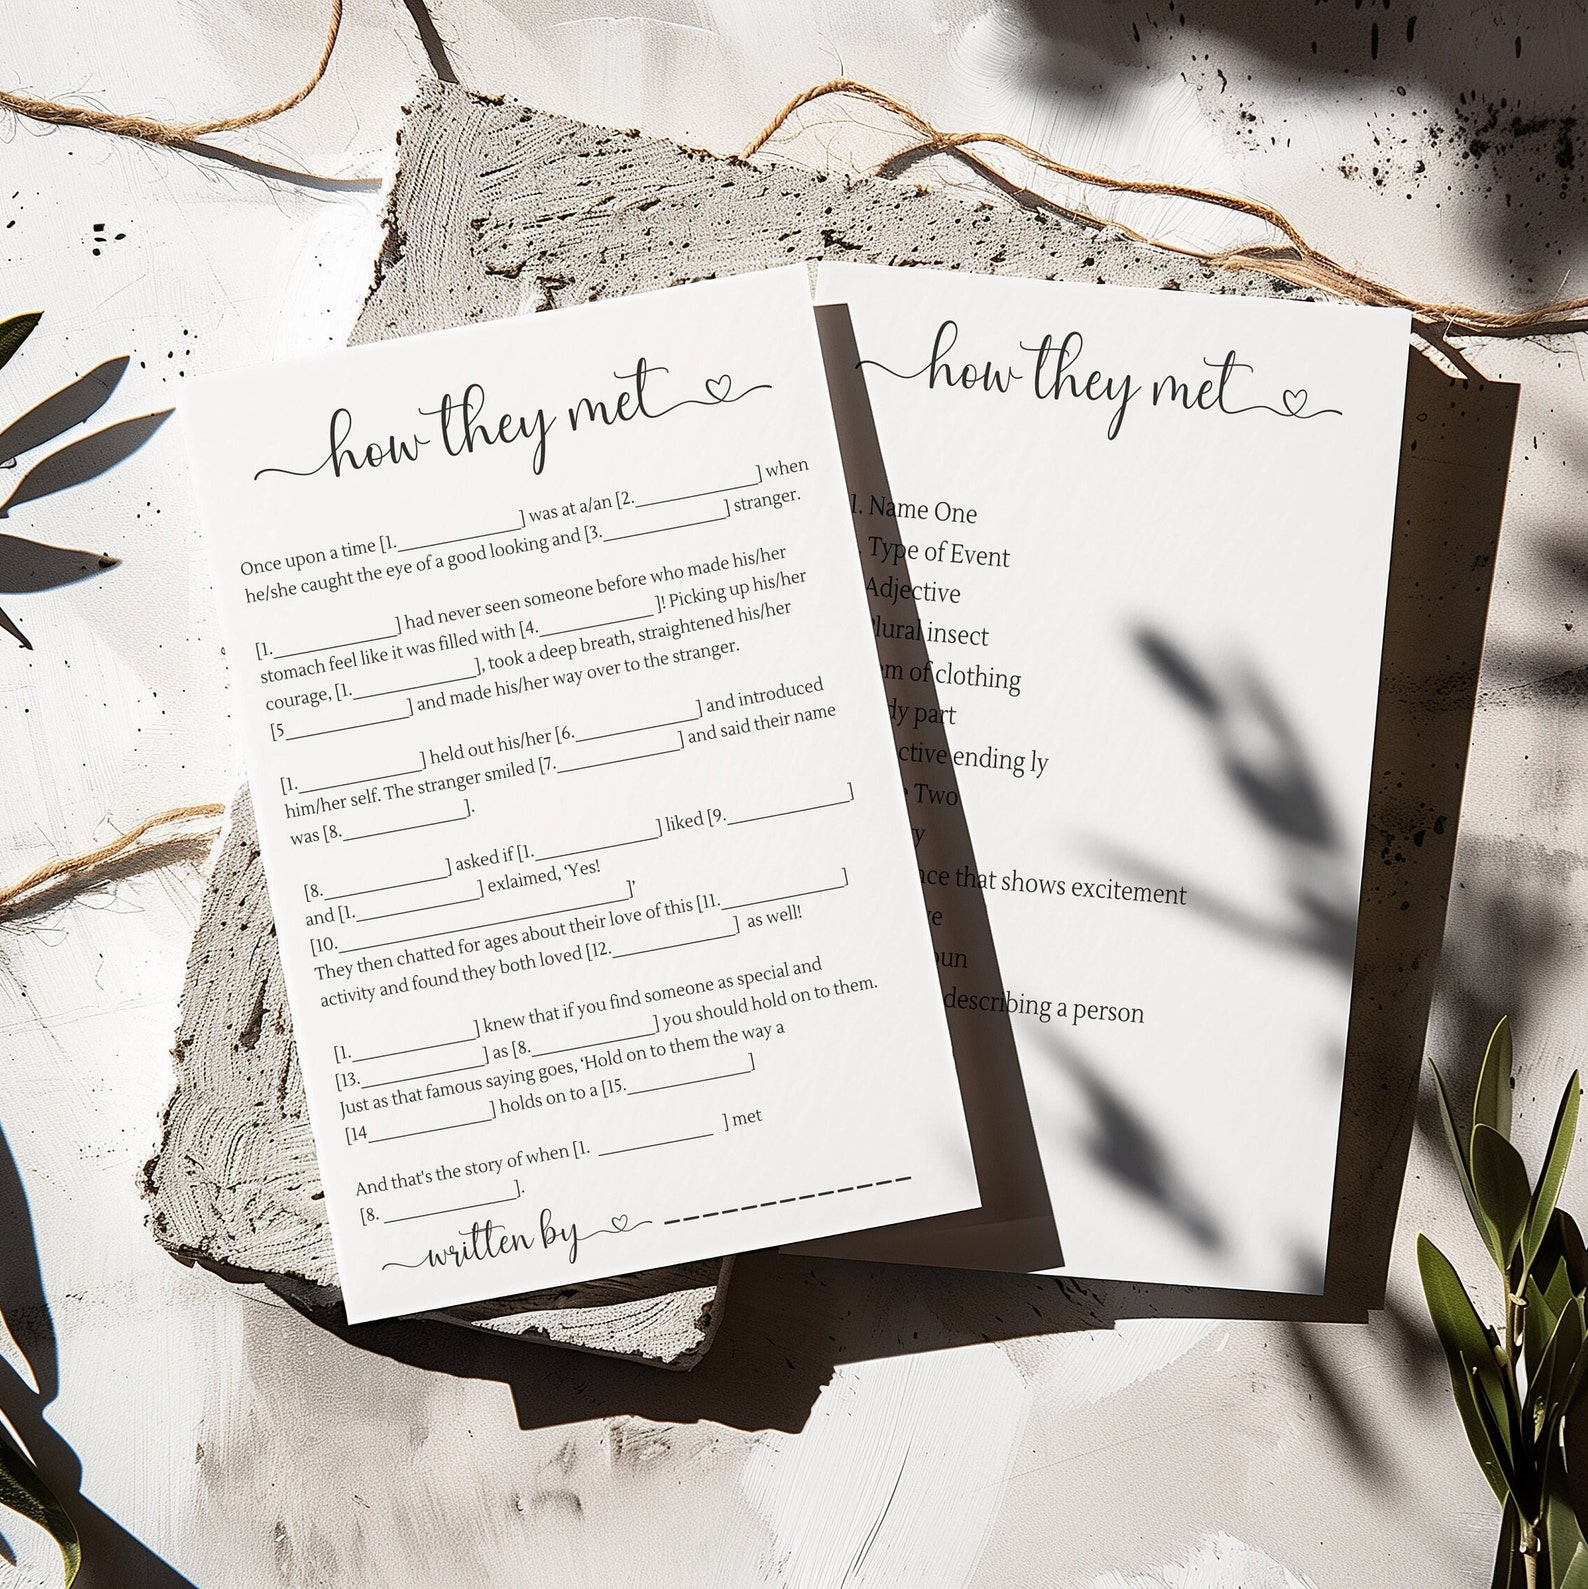 how they met
Once upon a time [1.______________] was at a/an [2.______________] when
he/she caught the eye of a good looking and [3.______________] stranger.
[1.______________] had never seen someone before who made his/her
stomach feel like it was filled with [4.______________ ]! Picking up his/her
courage, [1.______________], took a deep breath, straightened his/her
[5______________] and made his/her way over to the stranger.
[1.______________] held out his/her [6.______________] and introduced
him/her self. The stranger smiled [7.______________] and said their name
was [8.______________].
[8.______________] asked if [1.______________] liked [9.______________]
and [1.______________] exlaimed, ‘Yes!
[10.________________________________]’
They then chatted for ages about their love of this [11.______________]
activity and found they both loved [12.______________] as well!
[1.______________] knew that if you find someone as special and
[13.______________] as [8.______________] you should hold on to them.
Just as that famous saying goes, ‘Hold on to them the way a
[14______________] holds on to a [15.______________]
And that's the story of when [1. _____________ ] met
[8. ______________].
written by _ _ _ _ _ _ _ _ _ _ _ _ _
how they met
1. Name One
Type of Event
Adjective
Plural insect
of clothing
part
ending ly
Two
that shows excitement
describing a person